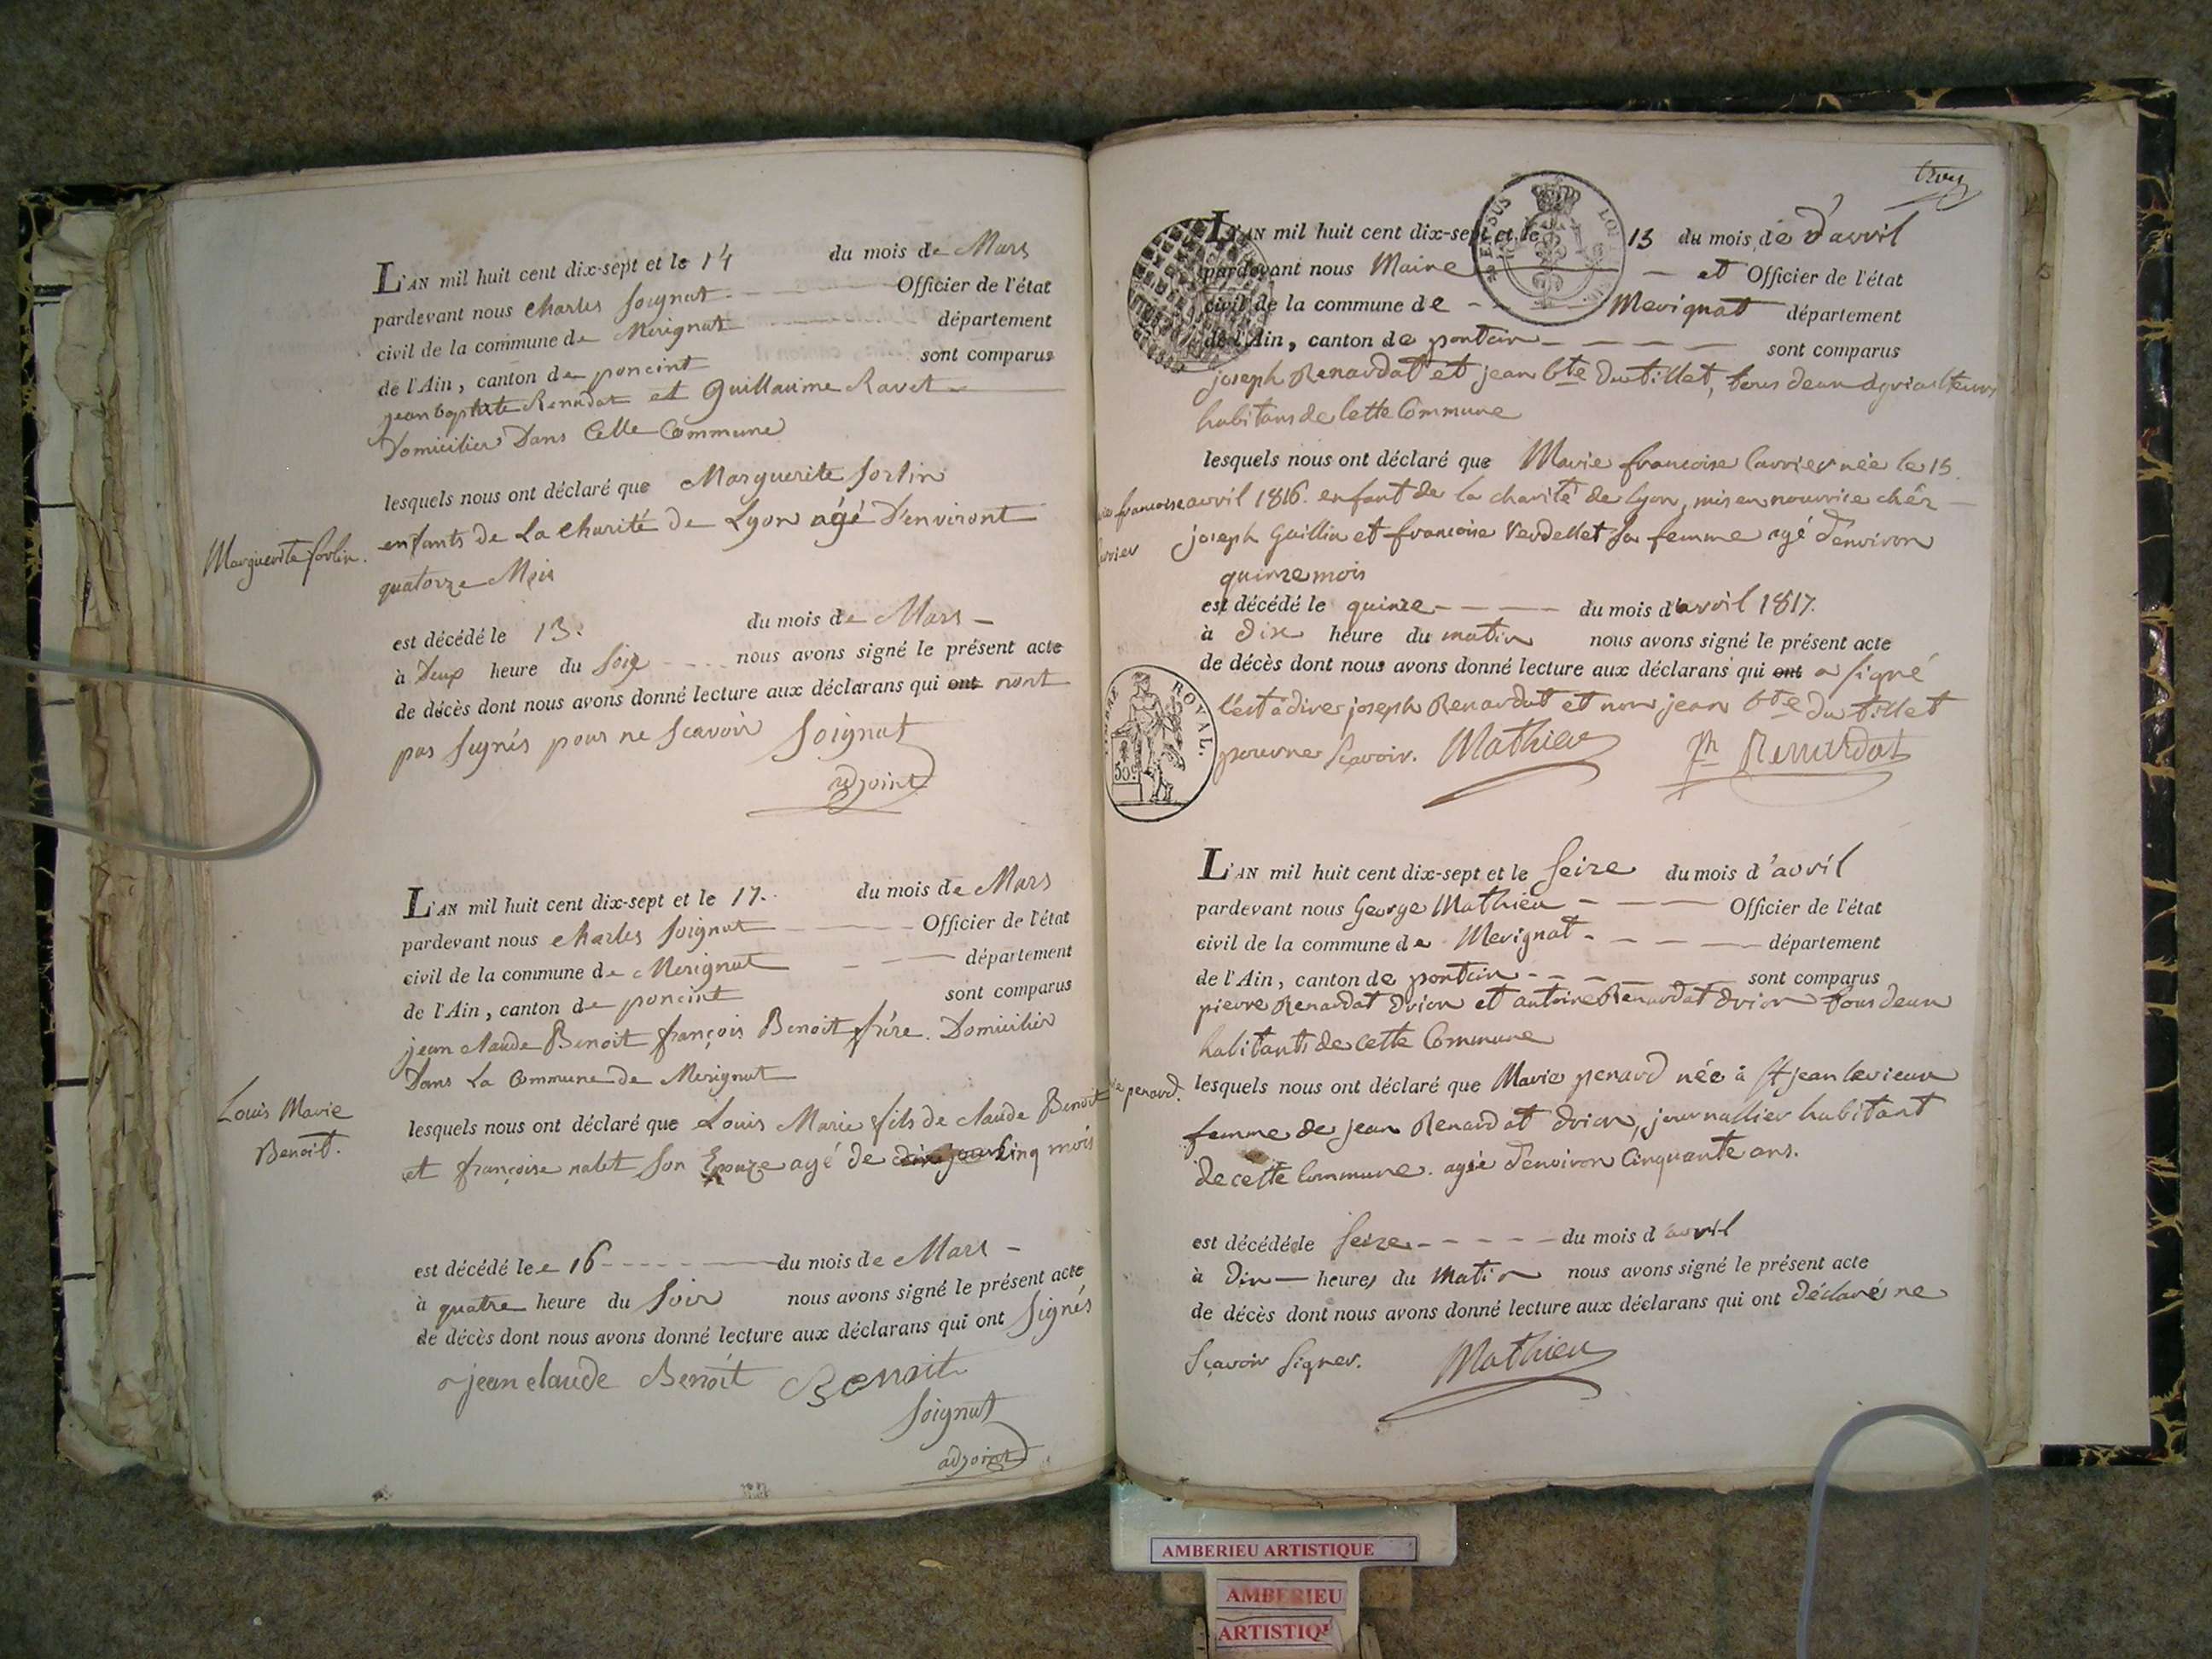 L'AN mil huit cent dix-sept et le 14 du mois de Mars
pardevant nous charles Soignat Officier de l'état
civil de la commune de Merignat département
de l'Ain, canton de poncint sont comparus
jean baptiste Renadat et Guillaume Ravet
Domicilier Dans Cette Commune
lesquels nous ont déclaré que Marguerite forlin
enfants de La charité de Lyon agé D'environt
quatorze Mois
Marguerite forlin.
est décédé le 13. du mois de Mars
à Deux heure du soir nous avons signé le présent acte
de décès dont nous avons donné lecture aux déclarans qui ont nont
pas signés pour ne scavoir Soignat
adjoint
L'AN mil huit cent dix-sept et le 17. du mois de Mars
pardevant nous charles Soignat Officier de l'état
civil de la commune de Merignat département
de l'Ain, canton de poncint sont comparus
jean claude Benoit françois Benoit frére. Domicilier
Dans La Commune de Merignat
Louis Marie
Benoit.
lesquels nous ont déclaré que Louis Marie fils de claude Benoit
et françoise nalet son Epouze agé de Cinq mois
est décédé le 16 du mois de Mars
à quatre heure du Soir nous avons signé le présent acte
de décès dont nous avons donné lecture aux déclarans qui ont signés
jean claude Benoit Benoit
Soignat
adjoint
L'AN mil huit cent dix-sept et le 15 du mois de d'avril
pardevant nous Maire et Officier de l'état
civil de la commune de Merignat département
de l'Ain, canton de pontcin sont comparus
joseph Renardat et jean bte Dutillet, tous deux agriculteurs
habitans de cette Commune
lesquels nous ont déclaré que Marie françoise née le 15
françoise
avril 1816. enfant de la charité de Lyon, mis en nourrice chêr
joseph Guillin et françoise Verdellet sa femme agé d'environ
quinze mois
est décédé le quinze du mois d'avril 1817.
à Dix heure du matin nous avons signé le présent acte
de décès dont nous avons donné lecture aux déclarans qui ont a signé
c'est à dire joseph Renardat et non jean bte du tillet
pour ne sçavoir. Mathieu Jh Renardat
TIMBRE ROYAL.
50c
L'AN mil huit cent dix-sept et le seize du mois d'avril
pardevant nous George Mathieu Officier de l'état
civil de la commune de Merignat département
de l'Ain, canton de pontcin sont comparus
pierre Renardat Drion et antoine Renardat Drion tous deux
habitants de cette Commune
penard.
lesquels nous ont déclaré que Marie penard née à St jean le vieux
femme de jean Renardat drion, journallier habitant
de cette Commune. agée d'environ Cinquante ans.
est décédé le seize du mois d'avril
à Dix heures du matin nous avons signé le présent acte
de décès dont nous avons donné lecture aux déclarans qui ont déclaré ne
sçavoir signer. Mathieu
AMBERIEU ARTISTIQUE
AMBERIEU
ARTISTIQU